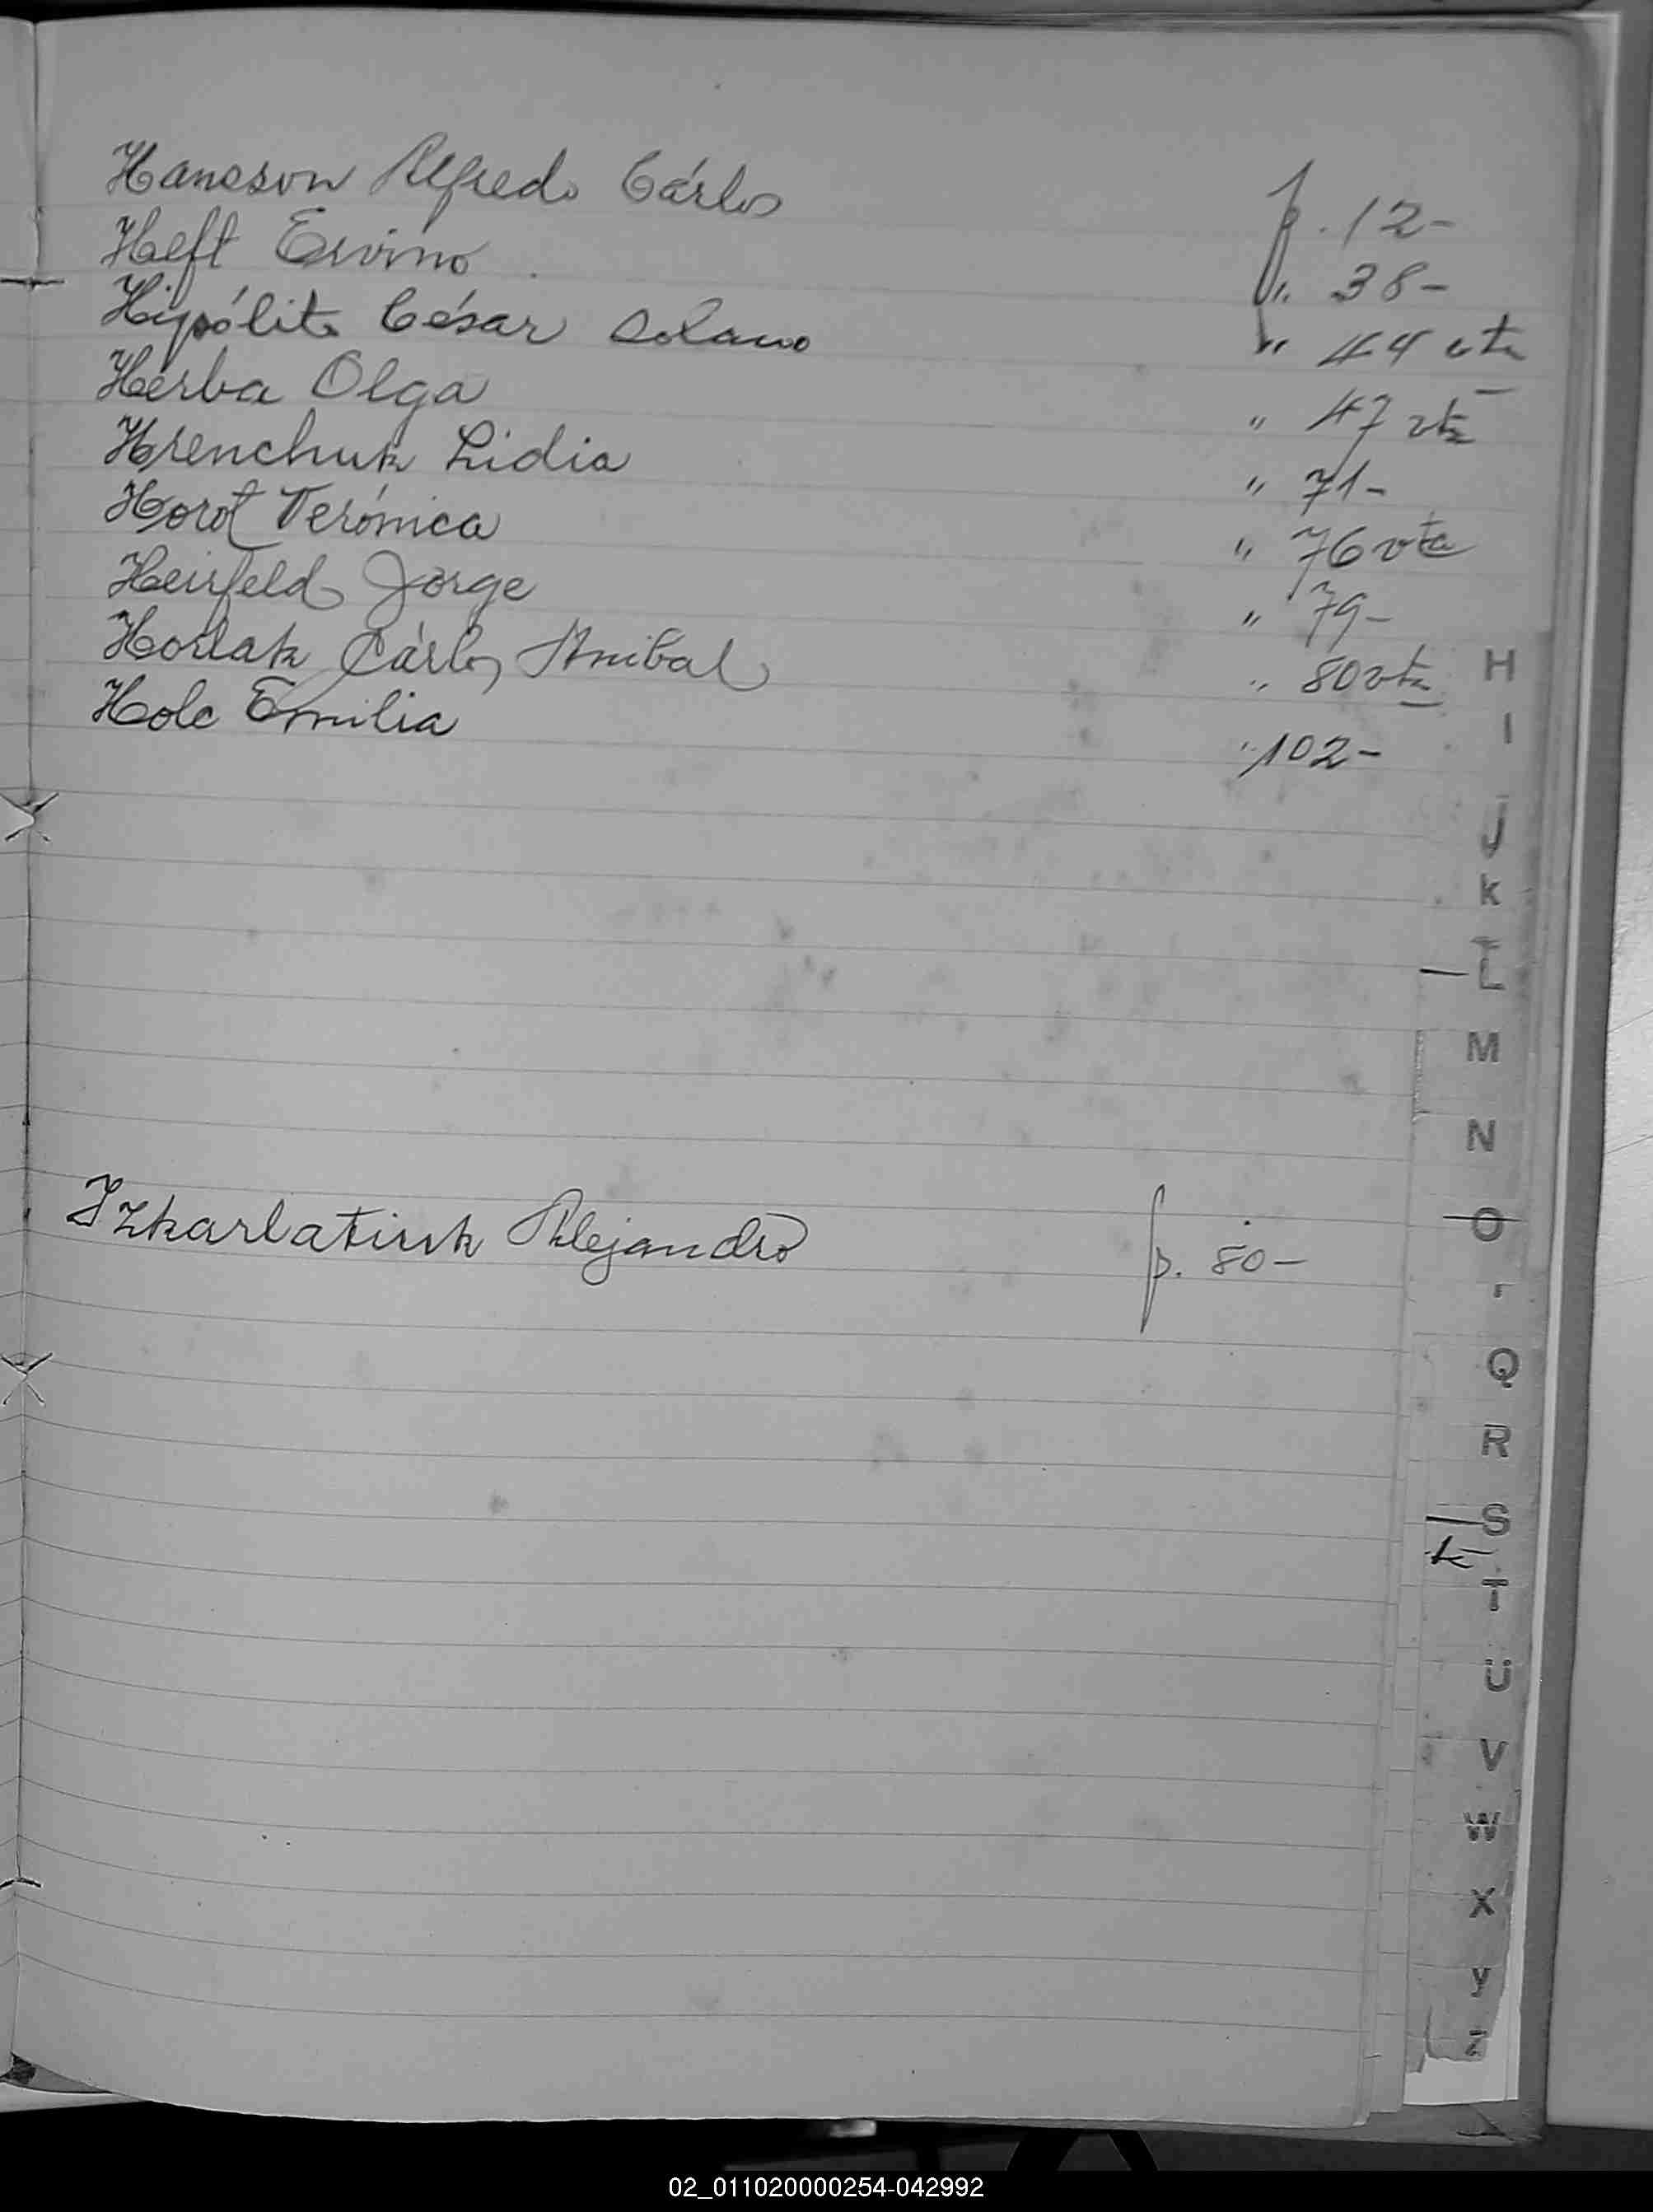 Hancson Alfredo Cárlos p. 12-
Heft Ervino " 38-
Hipólito César Solano " 44 vta
Herba Olga " 47 vta
Hrenchuk Lidia " 71-
Horot Verónica " 76 vta
Heirfeld Jorge " 79-
Horlak Cárlos Anibal " 80 vta
Holc Emilia " 102-
Izkarlatiuk Alejandro p. 80-
H
I
J
K
L
M
N
O
Q
R
S
T
U
V
W
X
Y
Z
02_011020000254-042992